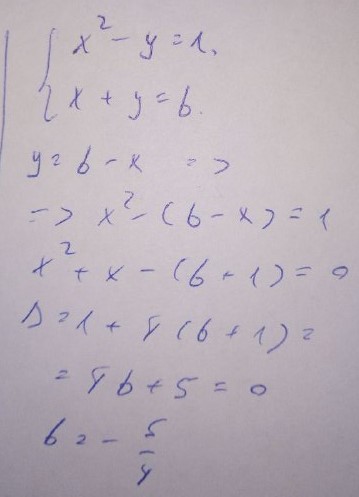 x² - y = 1,
x + y = b.
y = b - x =>
=> x² - (b - x) = 1
x² + x - (b + 1) = 0
D = 1 + 4(b + 1) =
= 4b + 5 = 0
b = - 5/4